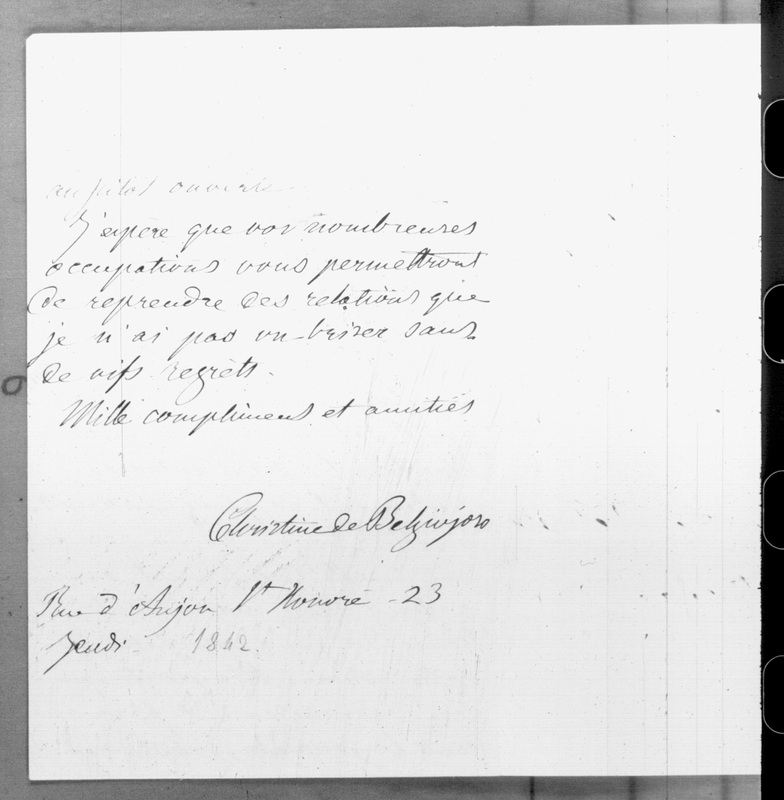 J'espère que vos nombreuses
occupations vous permettront
de reprendre des relations que
je n'ai pas vu briser sans
de vifs regrets.
Mille compliments et amitiés
Christine de Belgiojoso
Rue d'Anjou St Honoré - 23
Jeudi - 1842.